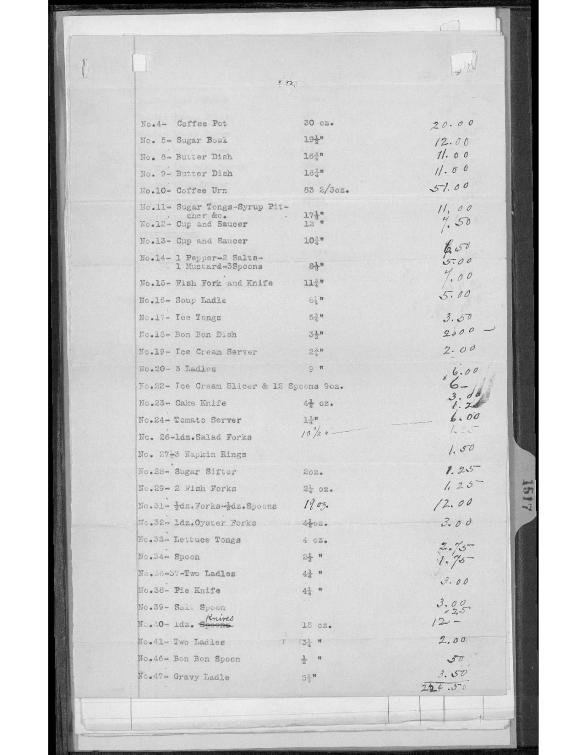 No.4- Coffee Pot 30 oz. 20.00
No. 5- Sugar Bowl 19½" 12.00
No. 8- Butter Dish 16¼" 11.00
No. 9- Butter Dish 16¼" 11.00
No.10- Coffee Urn 83 2/3oz. 51.00
No.11- Sugar Tongs-Syrup Pit-
cher &c. 17½" 11.00
No.12- Cup and Saucer 12 " 7.50
No.13- Cup and Saucer 10¼" 6.50
No.14- 1 Pepper-2 Salts-
1 Mustard-3Spoons 8½" 5.00
No.15- Fish Fork and Knife 11¼" 7.00
No.16- Soup Ladle 6¼" 5.00
No.17- Ice Tongs 5¼" 3.50
No.18- Bon Bon Dish 3½" 2.00 -
No.19- Ice Cream Server 2¼" 2.00
No.20- 3 Ladles 9 " 6.00
No.22- Ice Cream Slicer & 12 Spoons 9oz. 6-
No.23- Cake Knife 4½ oz. 3.00
No.24- Tomato Server 1½" 1.2
No. 26-1dz.Salad Forks 6.00
No. 27-3 Napkin Rings 1.50
No.28- Sugar Sifter 2oz. 1.25
No.29- 2 Fish Forks 2½ oz. 1.25
No.31- ½dz.Forks-½dz.Spoons 19 oz. 12.00
No.32- 1dz.Oyster Forks 4½oz. 3.00
No.33- Lettuce Tongs 4 oz. 2.75
No.34- Spoon 2½ " 1.75
37-Two Ladles 4¼ "
No.38- Pie Knife 4¼ " 3.00
No.39- Salt Spoon 3.00
.25
Knives
No.40- 1dz. Spoons 18 oz. 12-
No.41- Two Ladles 3¼ " 2.00
No.46- Bon Bon Spoon ½ " 50
No.47- Gravy Ladle 5½" 3.50
1517